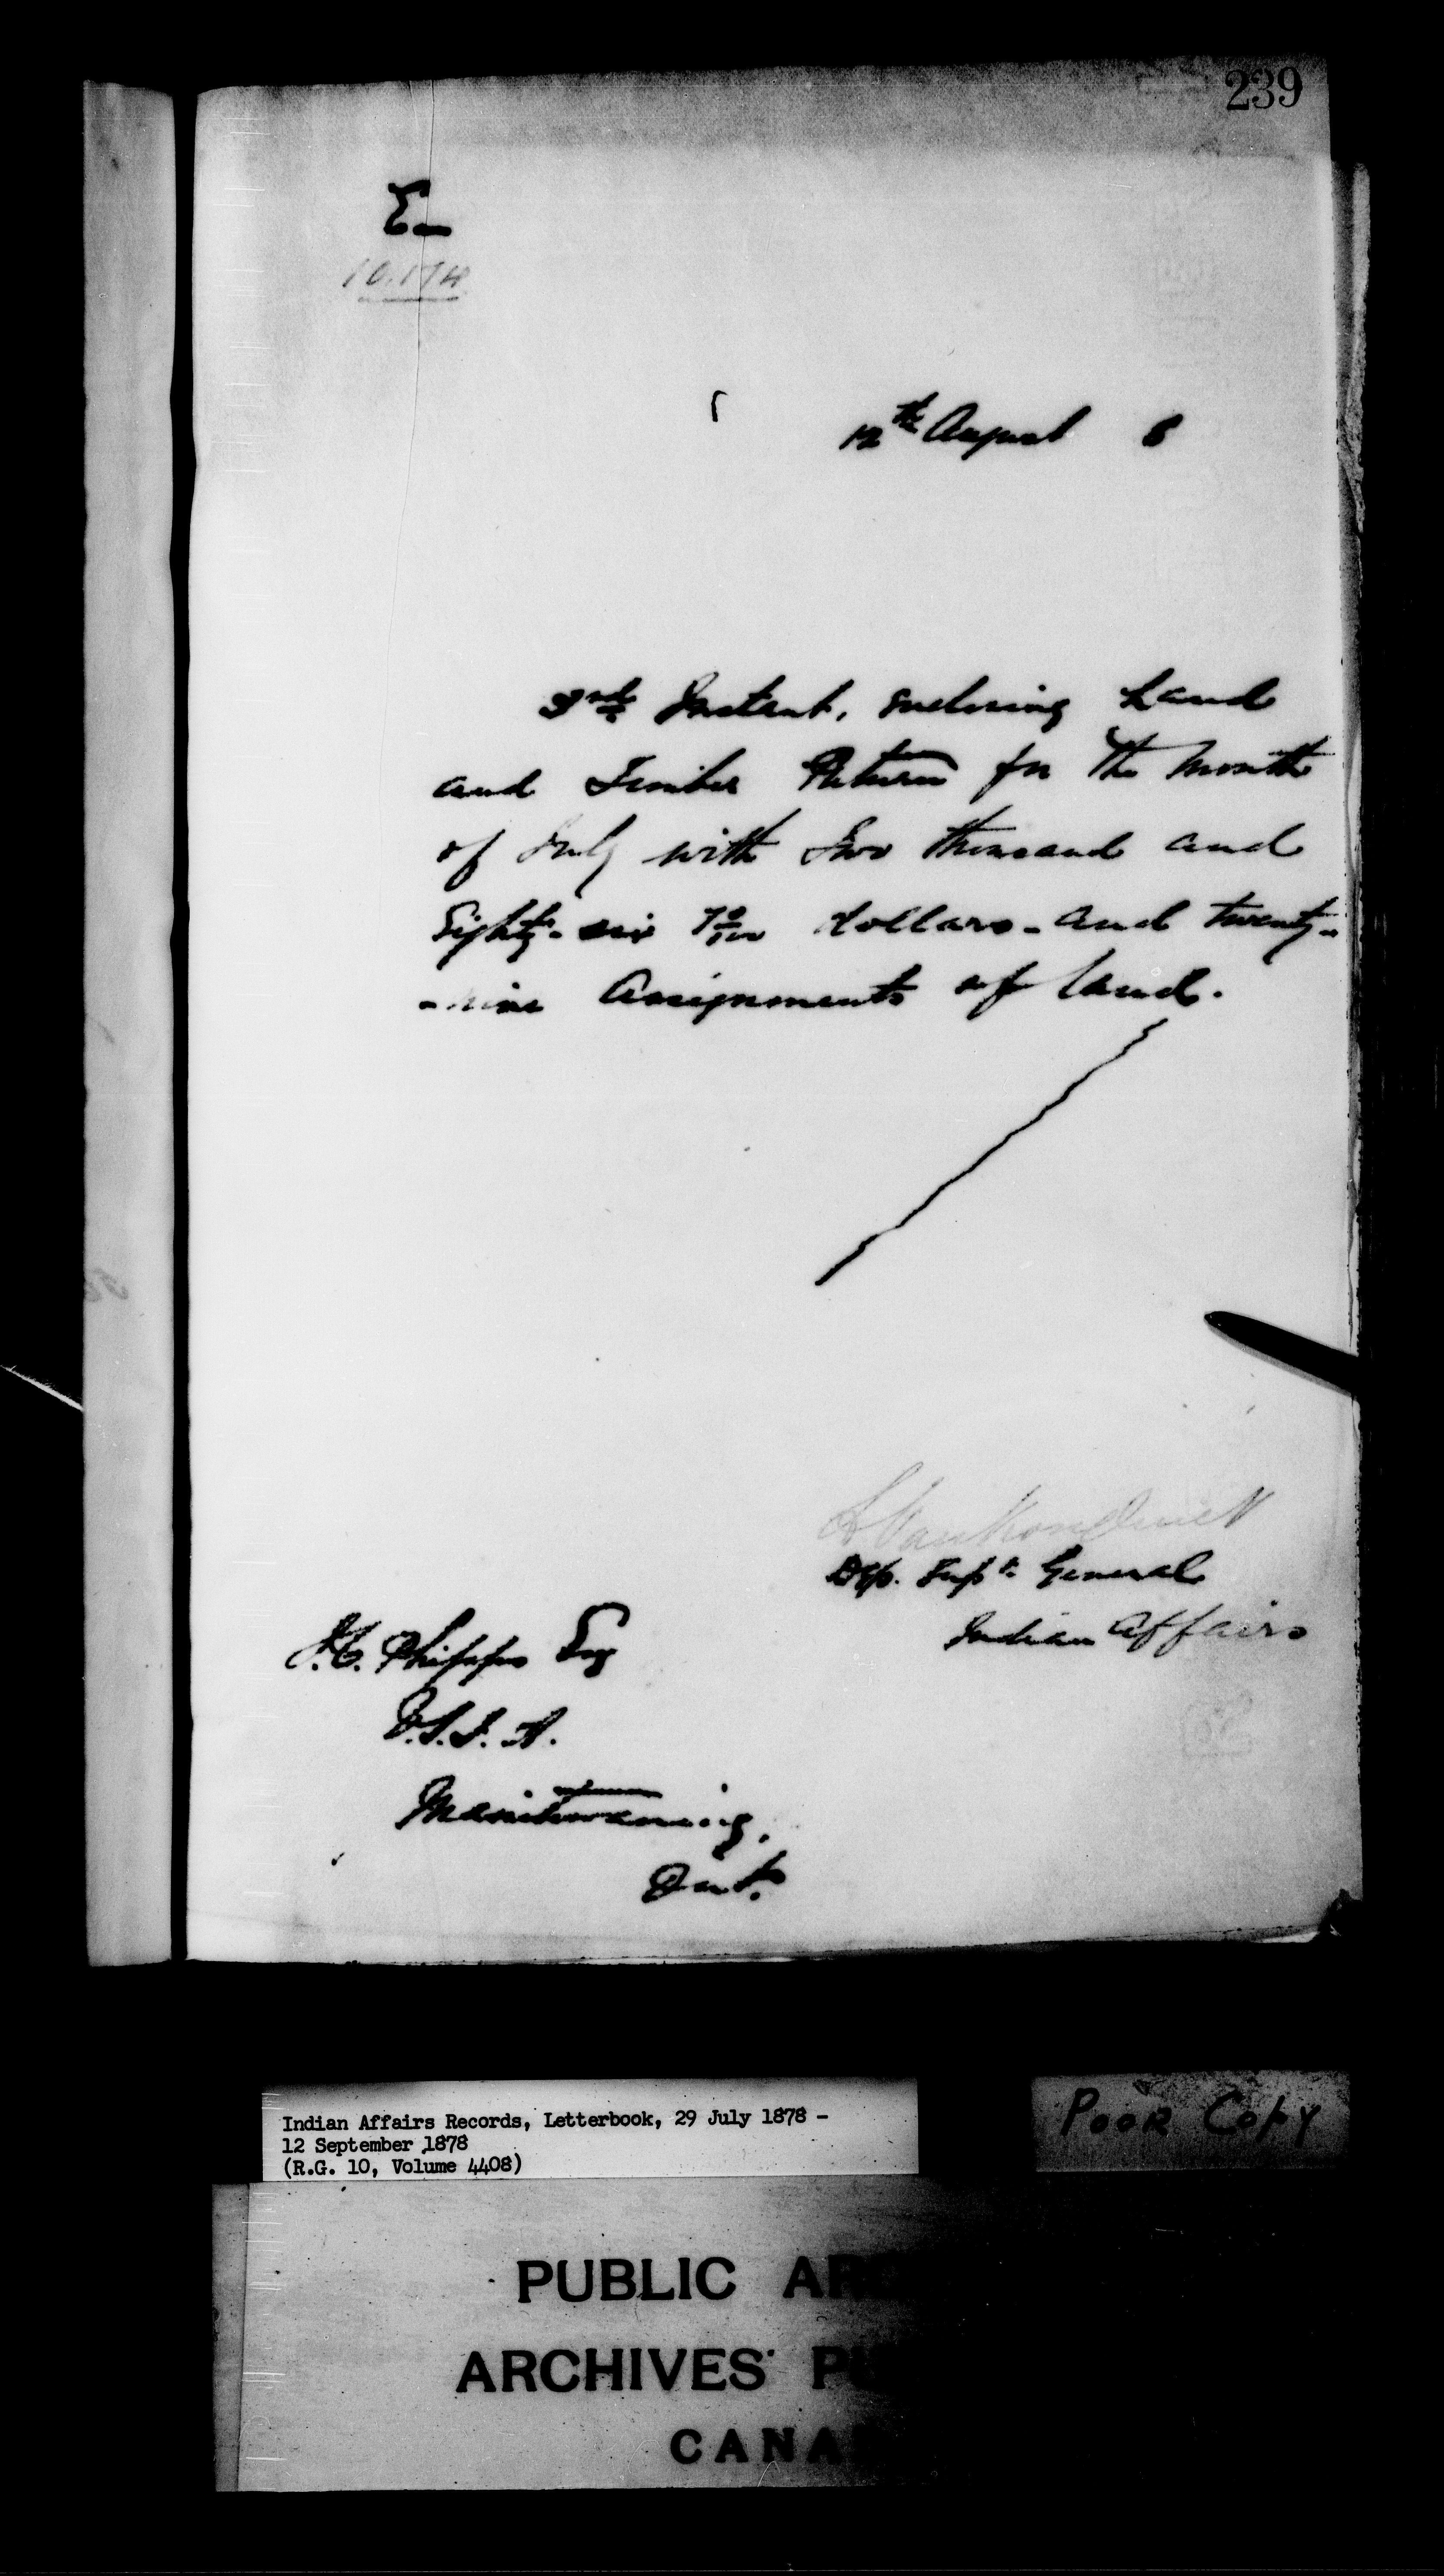 239
E_
10.174
12th August 8
3rd Instant, enclosing Land
and Timber Return for the month
of July with Two thousand and
Eighty-six 70/100 dollars - and twenty-
-nine Assignments of land.
L Vankoughnet
Dep. Supt. General
Indian Affairs
J.C. Phipps Esq
V.S.I.A.
Manitowaning,
Ont.
Indian Affairs Records, Letterbook, 29 July 1878 -
12 September 1878
(R.G. 10, Volume 4408)
POOR COPY
PUBLIC AR
ARCHIVES P
CANA